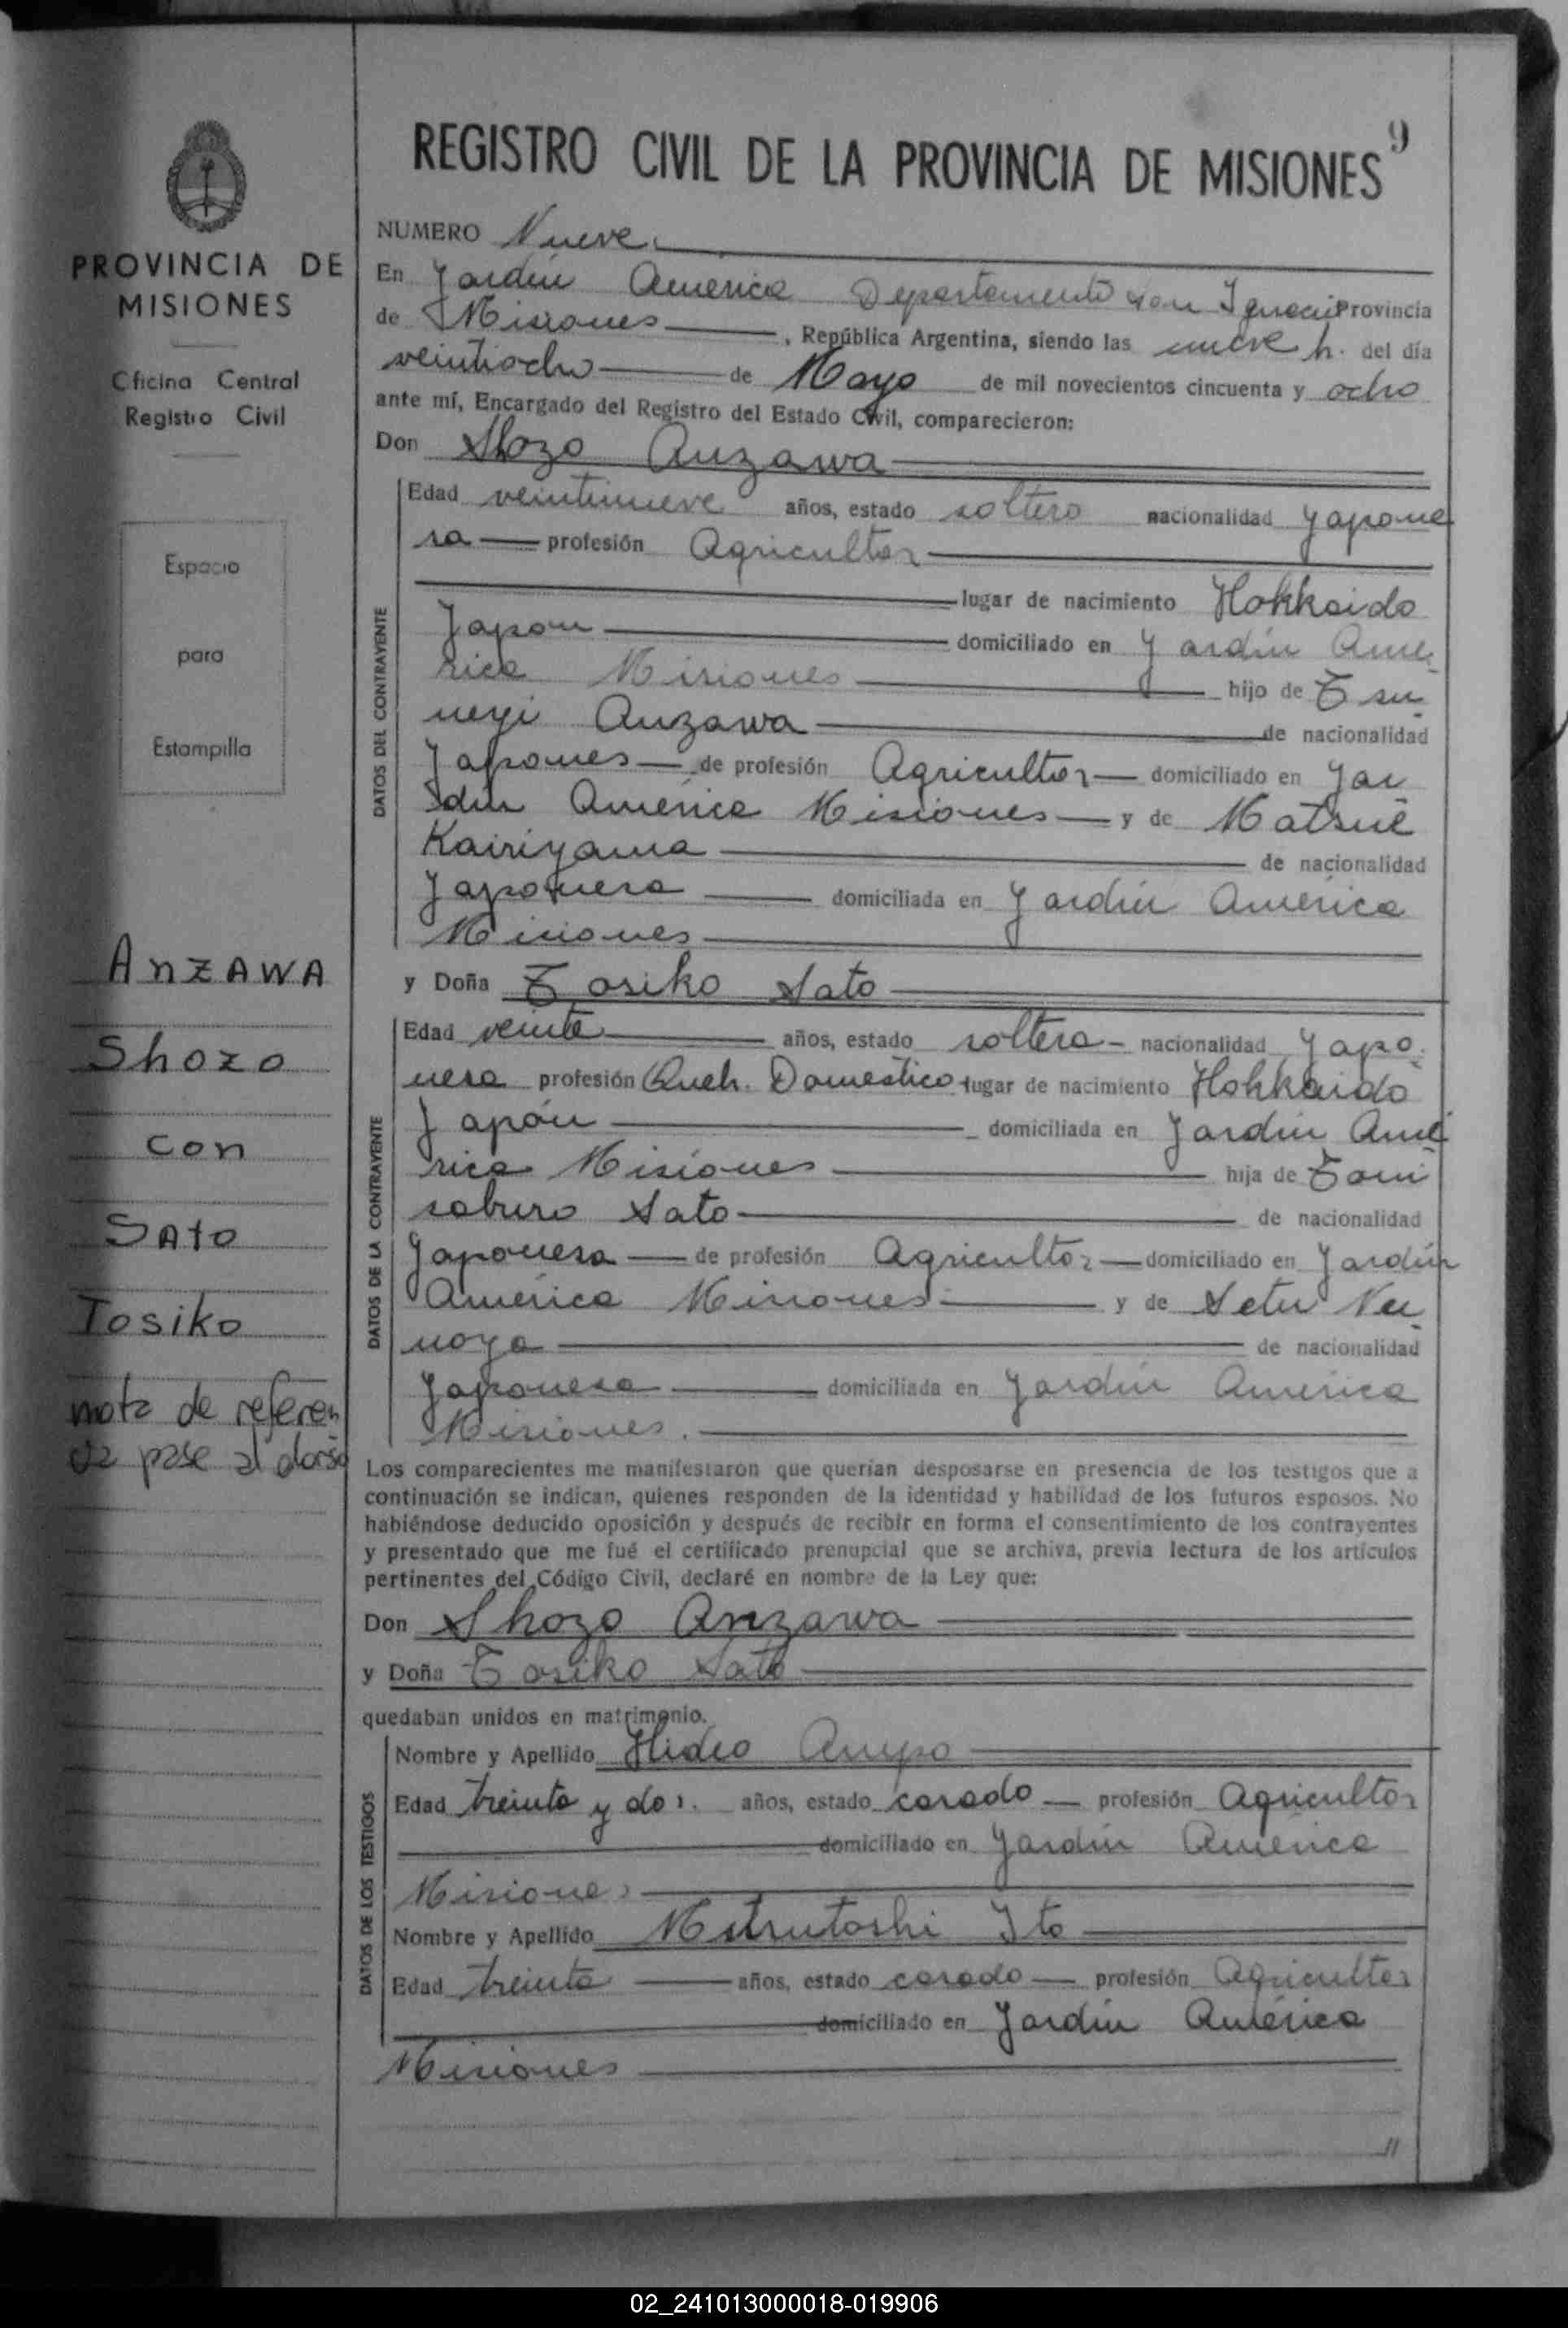 9
REGISTRO CIVIL DE LA PROVINCIA DE MISIONES
PROVINCIA DE
MISIONES
Oficina Central
Registro Civil
Espacio
para
Estampilla
ANZAWA
Shozo
con
SAto
Tosiko
nota de referen
cia pase al dorso
NUMERO Nueve
En Jardín América Departamento San Ignacio Provincia
de Misiones, República Argentina, siendo las nueve h. del día
veintiocho de Mayo de mil novecientos cincuenta y ocho
ante mí, Encargado del Registro del Estado Civil, comparecieron:
Don Shozo Anzawa
DATOS DEL CONTRAYENTE
Edad veintinueve años, estado soltero nacionalidad Japone
sa profesión Agricultor
lugar de nacimiento Hokkaido
Japon domiciliado en Jardín Amé-
rica Misiones hijo de Tsu-
neyi Anzawa de nacionalidad
Japones de profesión Agricultor domiciliado en Jar
din América Misiones y de Matsue
Kairiyama de nacionalidad
Japonesa domiciliada en Jardín América
Misiones
y Doña Tosiko Sato
DATOS DE LA CONTRAYENTE
Edad veinte años, estado soltera - nacionalidad Japo-
nesa profesión Queh. Domestico lugar de nacimiento Hokkaido
Japón domiciliada en Jardín Amé-
rica Misiones hija de Tomi
saburo Sato de nacionalidad
Japonesa de profesión Agricultor domiciliado en Jardín
América Misiones y de Setu Nu-
noya de nacionalidad
Japonesa domiciliada en Jardín América
Misiones.
Los comparecientes me manifestaron que querían desposarse en presencia de los testigos que a
continuación se indican, quienes responden de la identidad y habilidad de los futuros esposos. No
habiéndose deducido oposición y después de recibir en forma el consentimiento de los contrayentes
y presentado que me fué el certificado prenupcial que se archiva, previa lectura de los artículos
pertinentes del Código Civil, declaré en nombre de la Ley que:
Don Shozo Anzawa
y Doña Tosiko Sato
quedaban unidos en matrimonio.
DATOS DE LOS TESTIGOS
Nombre y Apellido Hideo
Edad treinta y dos. años, estado casado profesión Agricultor
domiciliado en Jardín América
Misiones
Nombre y Apellido Mitsutoshi Ito
Edad treinta años, estado casado profesión Agricultor
domiciliado en Jardín América
Misiones
//
02_241013000018-019906